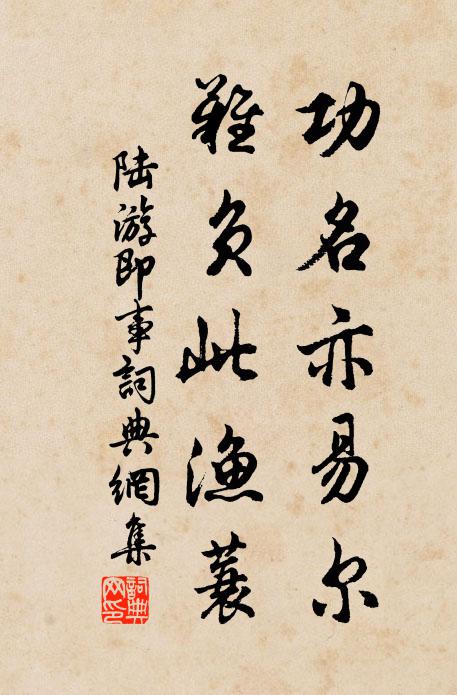 功名亦易尔
难负此渔蓑
陆游即事詞典網集
詞典网印